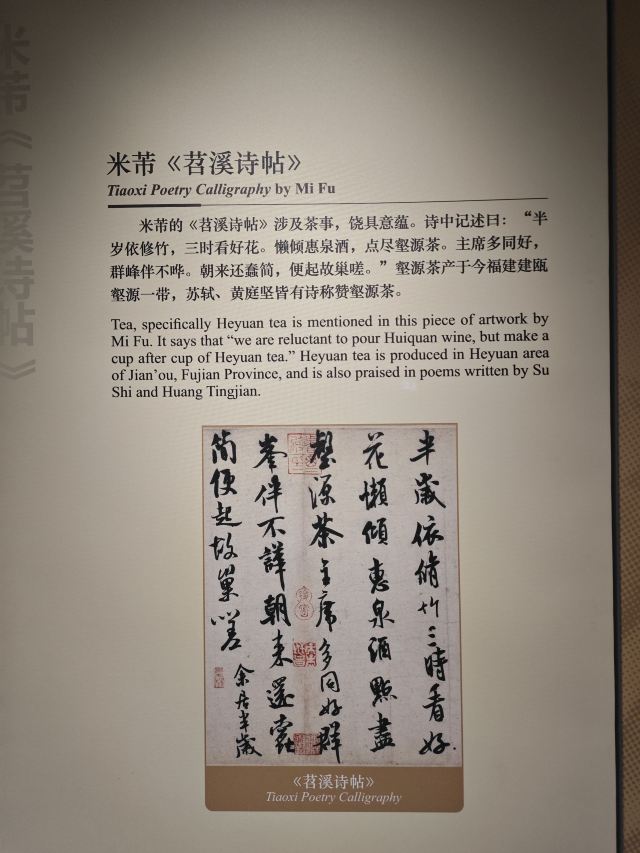 米芾《苕溪诗帖》
Tiaoxi Poetry Calligraphy by Mi Fu
米芾的《苕溪诗帖》涉及茶事，饶具意蕴。诗中记述曰：“半
岁依修竹，三时看好花。懒倾惠泉酒，点尽壑源茶。主席多同好，
群峰伴不哗。朝来还蠹简，便起故巢嗟。”壑源茶产于今福建建瓯
壑源一带，苏轼、黄庭坚皆有诗称赞壑源茶。
Tea, specifically Heyuan tea is mentioned in this piece of artwork by
Mi Fu. It says that “we are reluctant to pour Huiquan wine, but make a
cup after cup of Heyuan tea.” Heyuan tea is produced in Heyuan area
of Jian’ou, Fujian Province, and is also praised in poems written by Su
Shi and Huang Tingjian.
半歲依脩竹三時看好
花懶傾惠泉酒點盡
壑源茶主席多同好群
峯伴不譁朝来還蠹
簡便起故巢嗟
余居半歲
《苕溪诗帖》
Tiaoxi Poetry Calligraphy
米芾《苕溪诗帖》